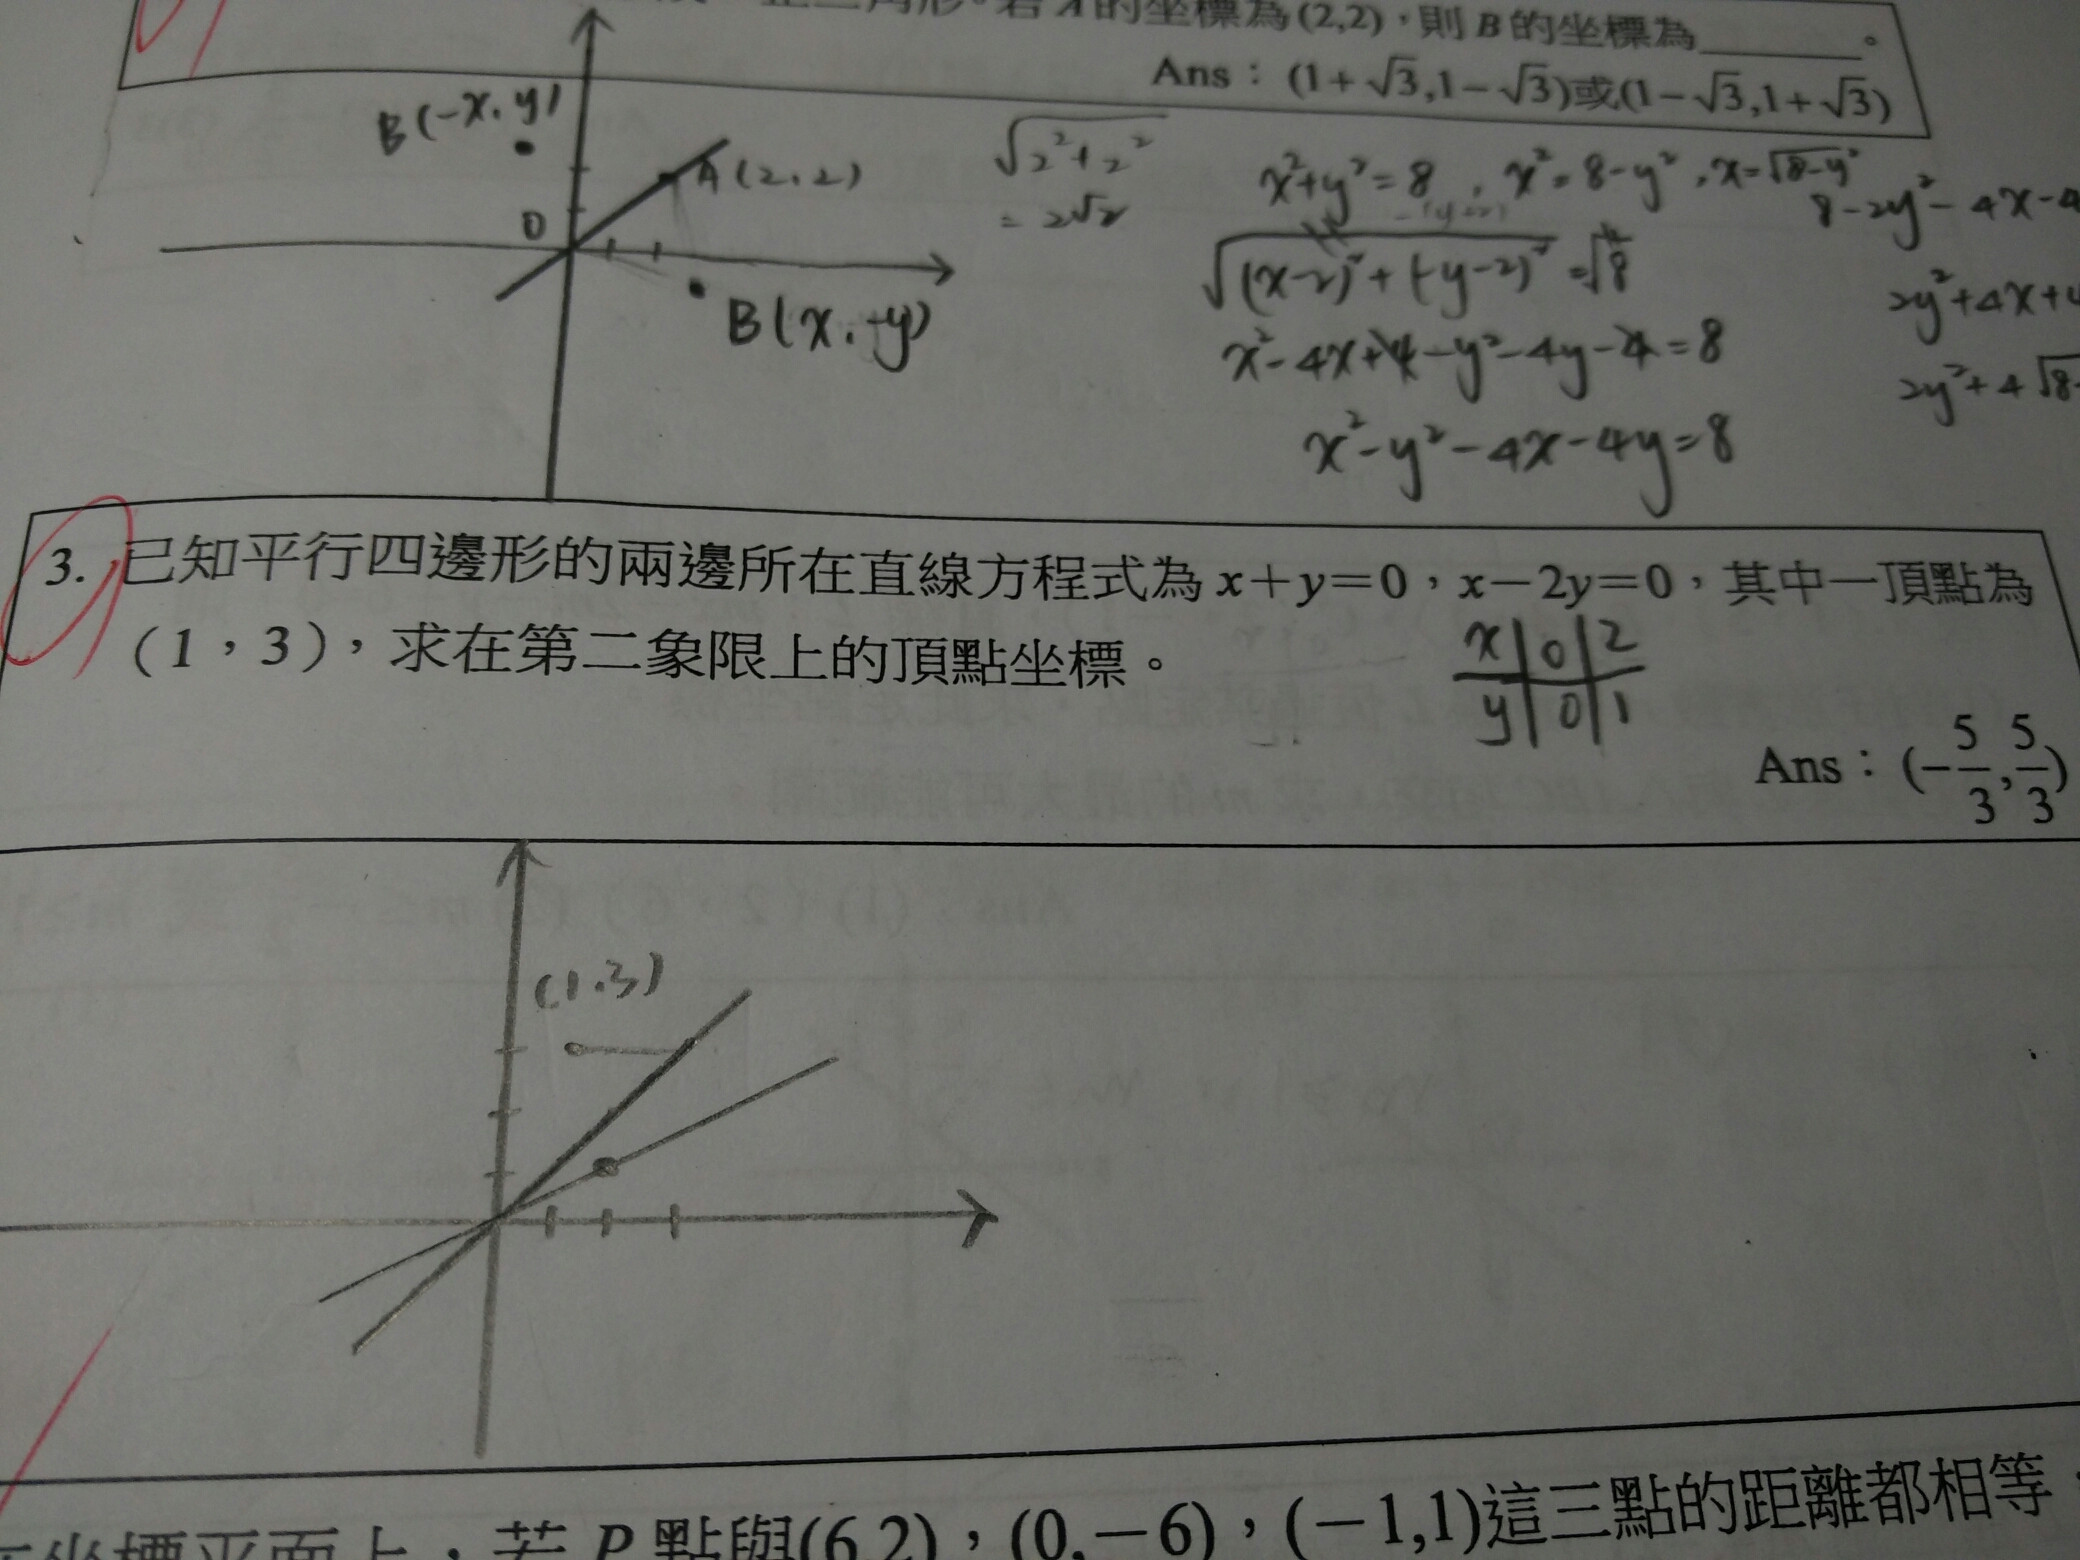 角形。若A的坐標為(2,2),則B的坐標為______。
Ans：(1+√3,1−√3)或(1−√3,1+√3)
B(-x, y)
A(2,2)
0
B(x, -y)
√2²+2²
= 2√2
x²+y²=8, x²=8-y², x=√8-y²
√(x-2)²+(-y-2)² = √8
x²-4x+4-y²-4y-4=8
x²-y²-4x-4y=8
8-2y²-4x-4
2y²+4x+4
2y²+4√8-
3. 已知平行四邊形的兩邊所在直線方程式為x+y=0，x−2y=0，其中一頂點為
(1，3)，求在第二象限上的頂點坐標。
x 0 2
y 0 1
Ans：(−5/3,5/3)
(1,3)
坐標平面上，若P點與(6,2)，(0,−6)，(−1,1)這三點的距離都相等